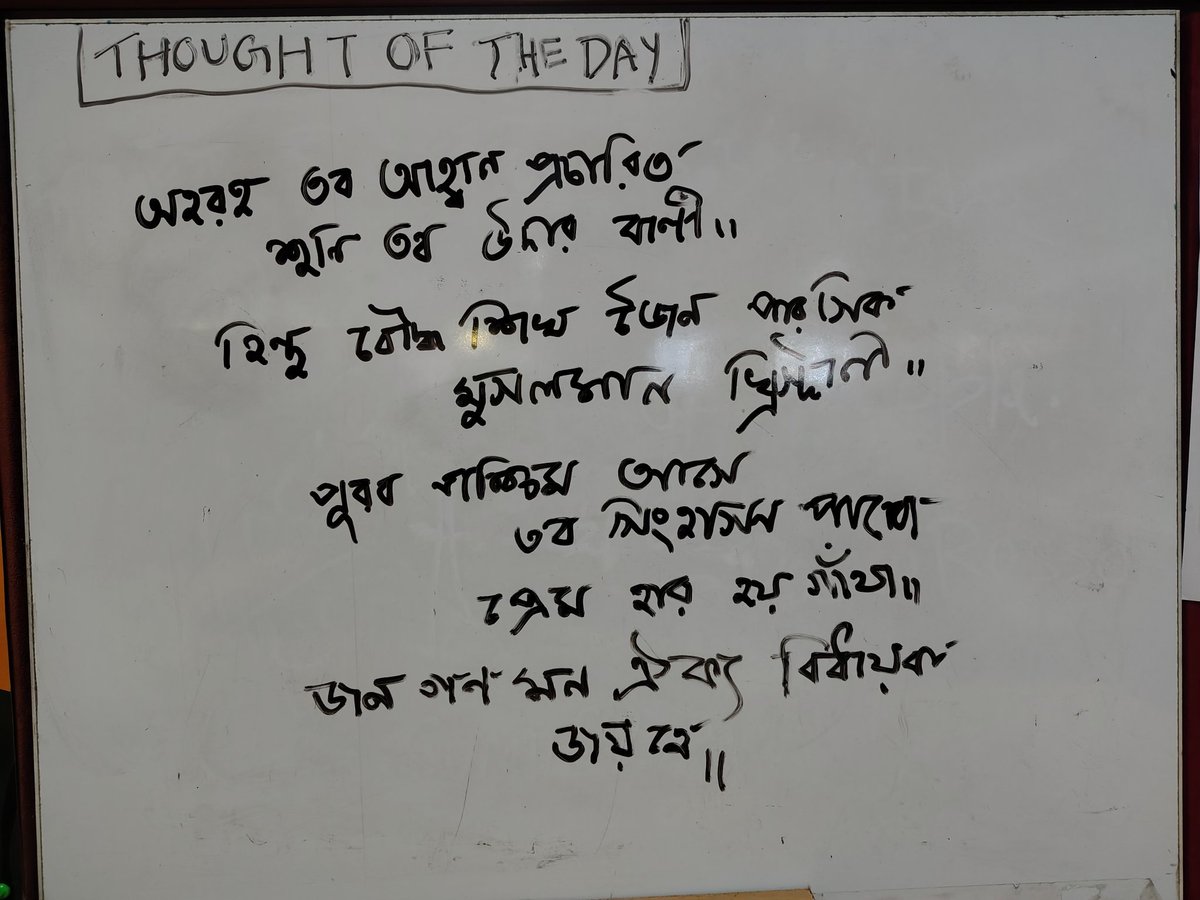 THOUGHT OF THE DAY
অহরহ তব আহ্বান প্রচারিত
শুনি তব উদার বাণী॥
হিন্দু বৌদ্ধ শিখ জৈন পারসিক
মুসলমান খ্রিস্টানী॥
পূরব পশ্চিম আসে
তব সিংহাসন পাশে
প্রেম হার হয় গাঁথা॥
জন গণ মন ঐক্য বিধায়ক
জয় হে॥